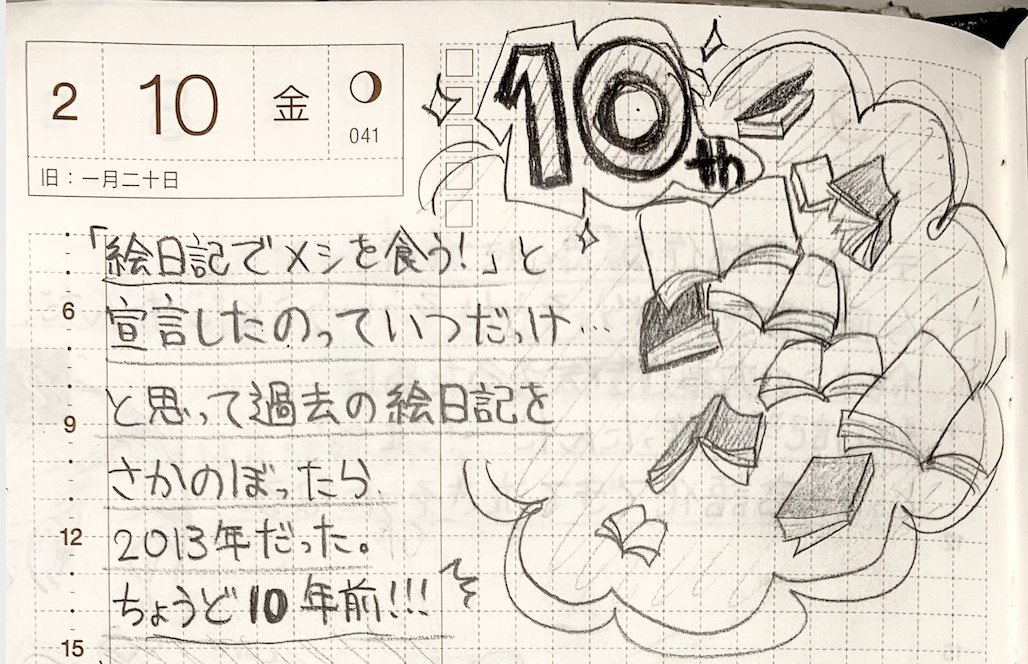 2 10 金
041
旧：一月二十日
10th
「絵日記でメシを食う！」と
宣言したのっていつだっけ…
6
と思って過去の絵日記を
9
さかのぼったら
2013年だった。
12
ちょうど10年前!!!
15